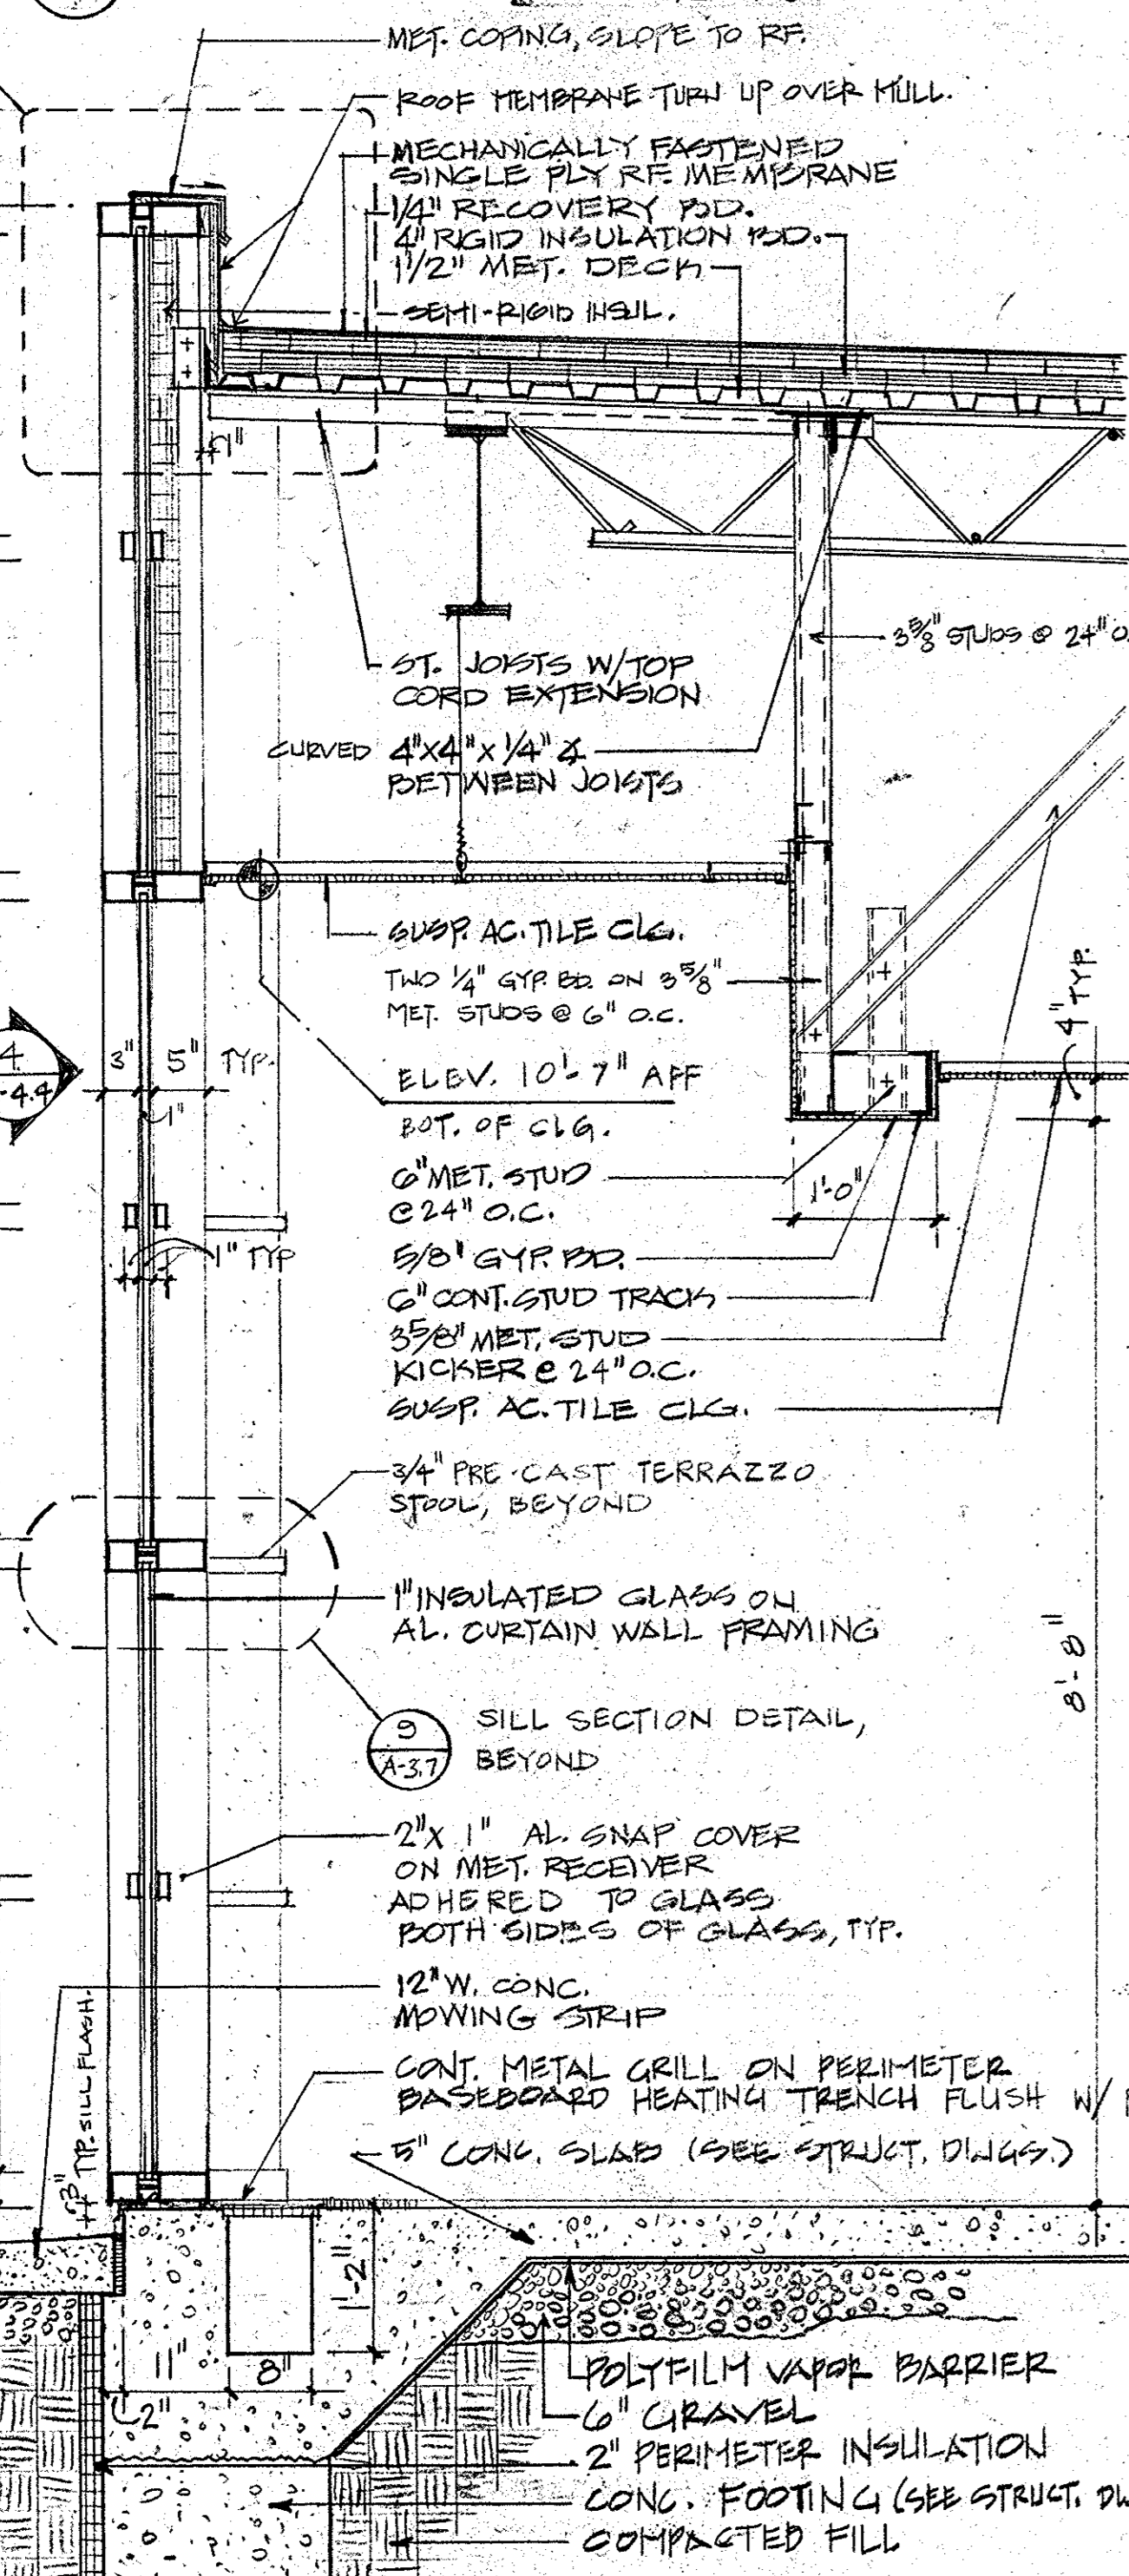 MET. COPING, SLOPE TO RF.
ROOF MEMBRANE TURN UP OVER MULL.
MECHANICALLY FASTENED
SINGLE PLY RF. MEMBRANE
1/4" RECOVERY BD.
4" RIGID INSULATION BD.
1 1/2" MET. DECK
SEMI-RIGID INSUL.
1"
3 5/8" STUDS @ 24" O.
ST. JOISTS W/TOP
CORD EXTENSION
CURVED 4"X4"X 1/4" ∡
BETWEEN JOISTS
SUSP. AC. TILE CLG.
TWO 1/4" GYP. BD. ON 3 5/8"
MET. STUDS @ 6" O.C.
4" TYP.
4
-4.4
3" 5" TYP.
1"
ELEV. 10'-7" AFF
BOT. OF CLG.
6" MET. STUD
@ 24" O.C.
1'-0"
1" TYP
5/8" GYP. BD.
6" CONT. STUD TRACK
3 5/8" MET. STUD
KICKER @ 24" O.C.
SUSP. AC. TILE CLG.
3/4" PRE-CAST TERRAZZO
STOOL, BEYOND
1" INSULATED GLASS ON
AL. CURTAIN WALL FRAMING
8'-8"
9
A-3.7
SILL SECTION DETAIL,
BEYOND
2" X 1" AL. SNAP COVER
ON MET. RECEIVER
ADHERED TO GLASS
BOTH SIDES OF GLASS, TYP.
12" W. CONC.
MOWING STRIP
3" TYP. SILL FLASH.
CONT. METAL GRILL ON PERIMETER
BASEBOARD HEATING TRENCH FLUSH W/
5" CONC. SLAB (SEE STRUCT. DWGS.)
1'-2"
11" 8"
2"
POLYFILM VAPOR BARRIER
6" GRAVEL
2" PERIMETER INSULATION
CONC. FOOTING (SEE STRUCT. DW
COMPACTED FILL